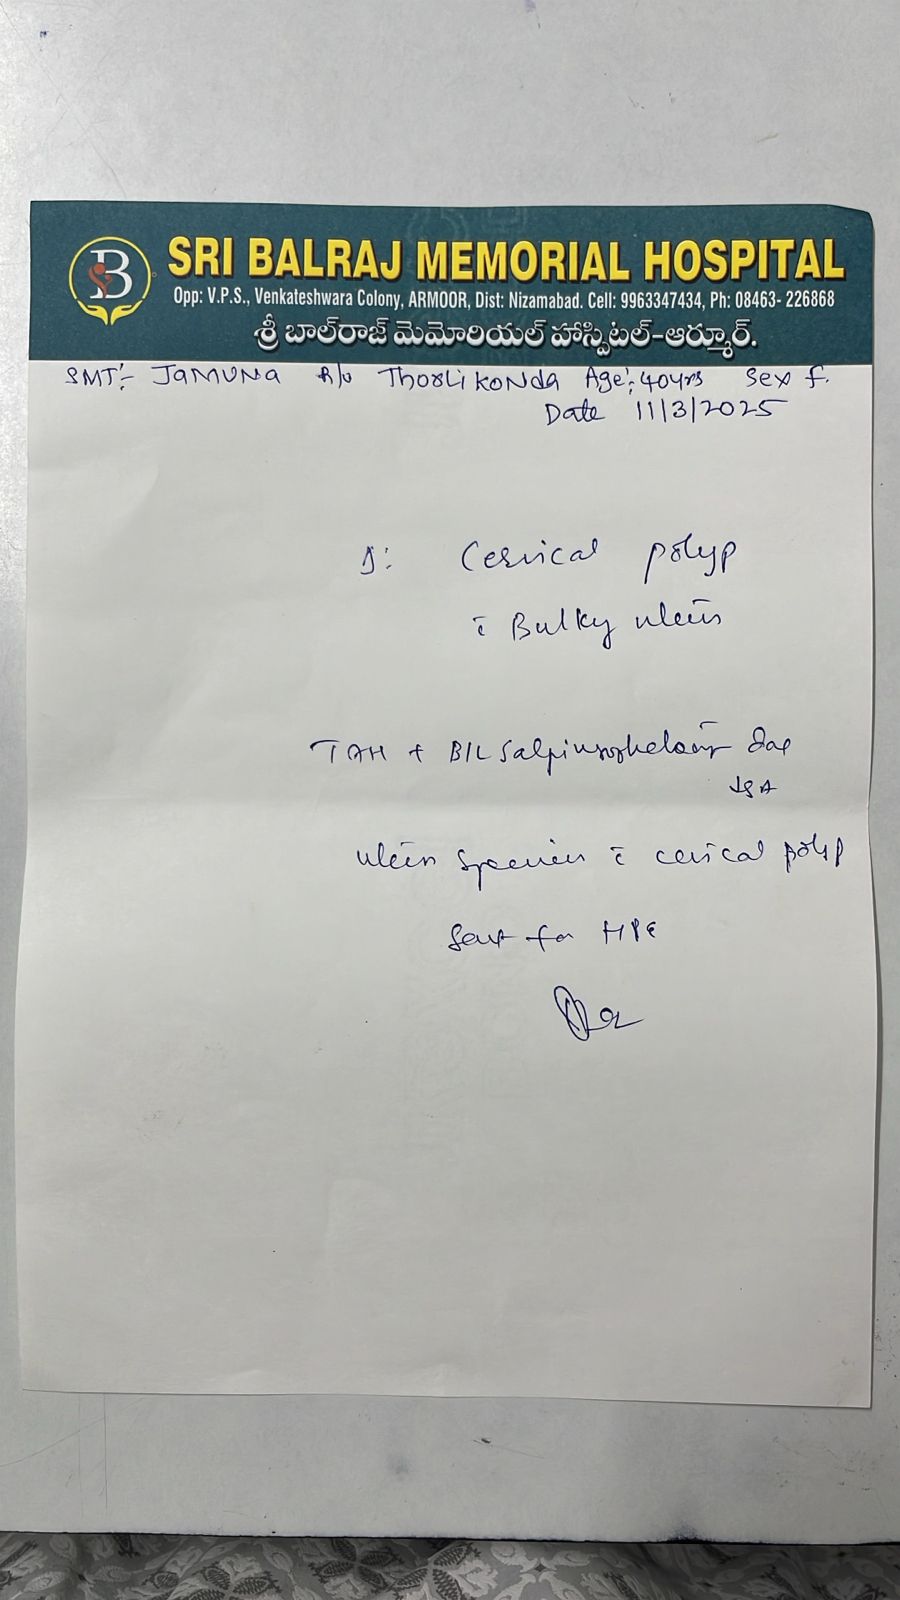 B
SRI BALRAJ MEMORIAL HOSPITAL
Opp: V.P.S., Venkateshwara Colony, ARMOOR, Dist: Nizamabad. Cell: 9963347434, Ph: 08463- 226868
శ్రీ బాల్‌రాజ్ మెమోరియల్ హాస్పిటల్-ఆర్మూర్.
SMT:- JAMUNA R/o Thorlikonda Age: 40yrs Sex f.
Date 11/3/2025
Cervical polyp
c̄ Bulky uterus
TAH + B/L Salpingophelectomy
uterus specimen c̄ cervical polyp
Sent for HPE